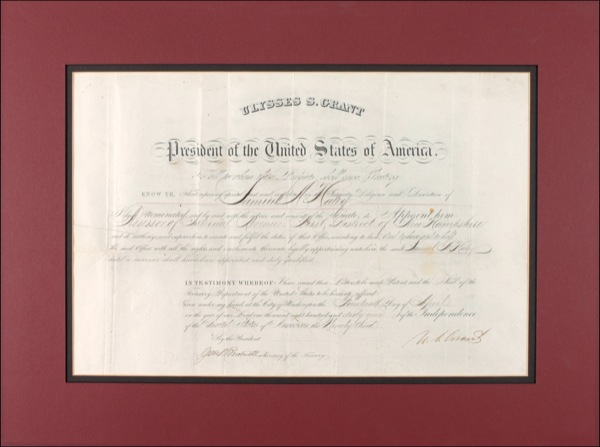 ULYSSES S. GRANT
President of the United States of America.
To all to whom these Presents shall come Greeting
KNOW YE, That reposing special and Integrity Diligence and Discretion of
Samuel
I have nominated, and by and with the advice and consent of the Senate, do Appoint him
Assessor of Internal Revenue First District of New Hampshire
and do authorize and empower him to execute and fulfil the duties of that Office according to law
the said Office with all the rights and emoluments thereunto legally appertaining unto him the said Samuel
until a successor shall have been appointed and duly qualified.
IN TESTIMONY WHEREOF: I have caused these Letters to be made Patent and the Seal of the
Treasury Department of the United States to be hereunto affixed.
Given under my hand at the City of Washington the day of
in the year of our Lord one thousand eight hundred and sixty nine of the Independence
of the United States of America the Ninety third
By the President
U. S. Grant
Secretary of the Treasury.